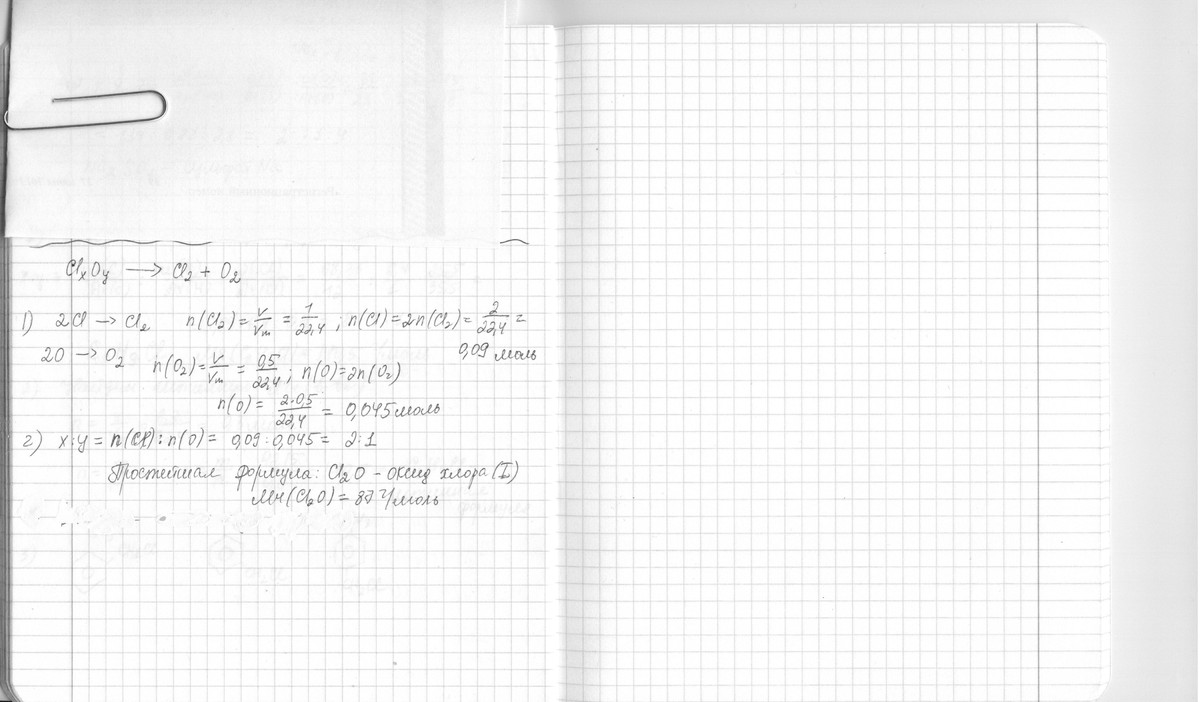 ClxOy ⟶ Cl2 + O2
1) 2Cl → Cl2 n(Cl2) = V/Vm = 1/22,4 ; n(Cl) = 2n(Cl2) = 2/22,4 =
0,09 моль
2O → O2 n(O2) = V/Vm = 0,5/22,4 ; n(O) = 2n(O2)
n(O) = 2·0,5/22,4 = 0,045 моль
2) x:y = n(Cl):n(O) = 0,09:0,045 = 2:1
Простейшая формула: Cl2O - оксид хлора (I)
Mч(Cl2O) = 87 г/моль